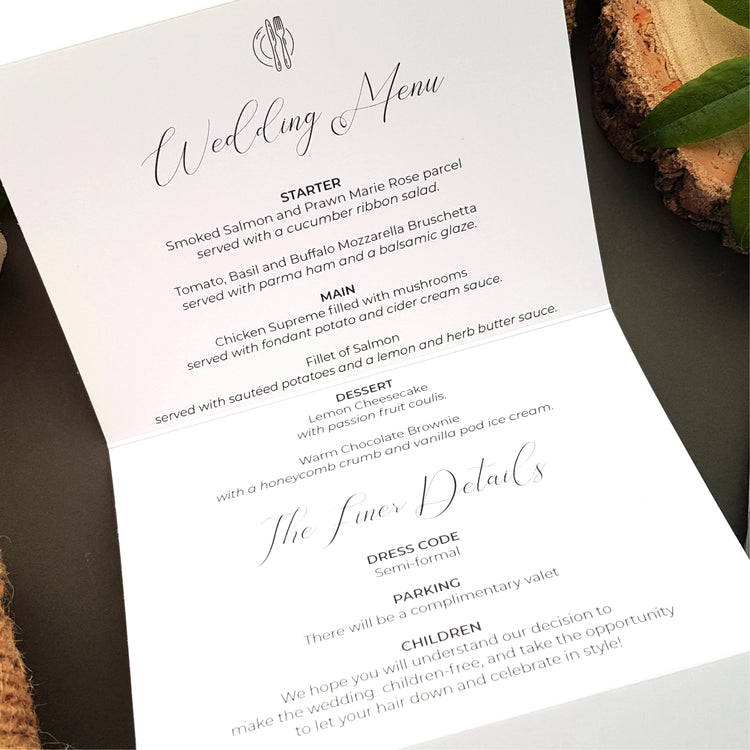 Wedding Menu
STARTER
Smoked Salmon and Prawn Marie Rose parcel
served with a cucumber ribbon salad.
Tomato, Basil and Buffalo Mozzarella Bruschetta
served with parma ham and a balsamic glaze.
MAIN
Chicken Supreme filled with mushrooms
served with fondant potato and cider cream sauce.
Fillet of Salmon
served with sautéed potatoes and a lemon and herb butter sauce.
DESSERT
Lemon Cheesecake
with passion fruit coulis.
Warm Chocolate Brownie
with a honeycomb crumb and vanilla pod ice cream.
The Finer Details
DRESS CODE
Semi-formal
PARKING
There will be a complimentary valet
CHILDREN
We hope you will understand our decision to
make the wedding children-free, and take the opportunity
to let your hair down and celebrate in style!